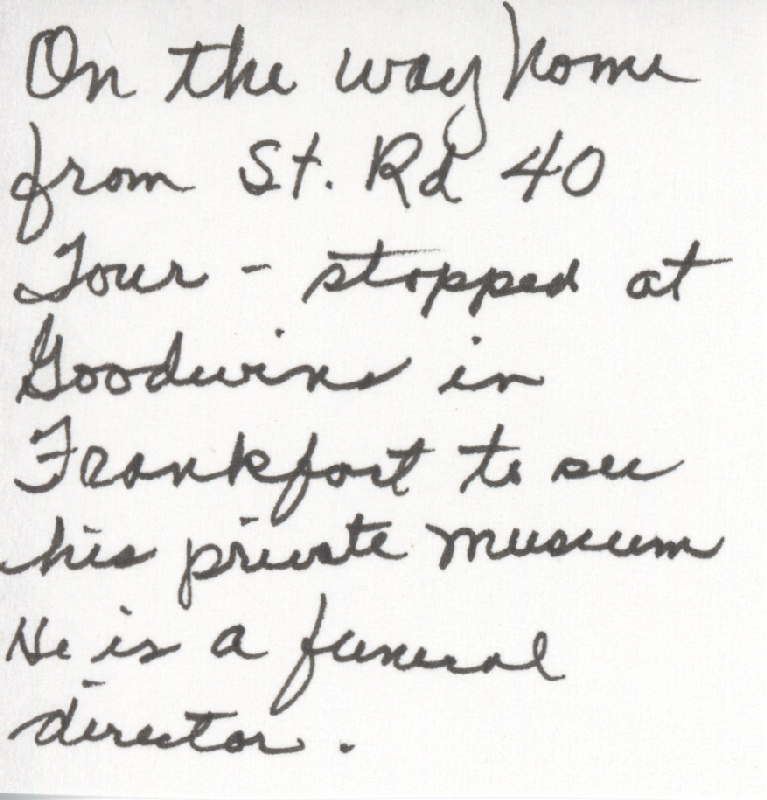 On the way home
from St. Rd 40
Tour - stopped at
Goodwins in
Frankfort to see
his private museum
He is a funeral
director.